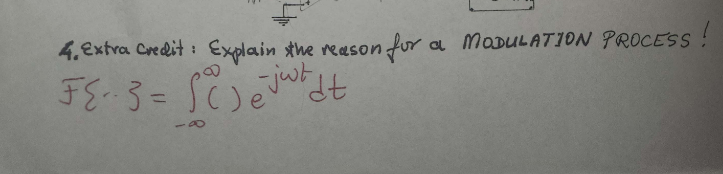 4. Extra Credit: Explain the reason for a MODULATION PROCESS!
F{..} = ∫_{-∞}^{∞} ( ) e^{-jωt} dt